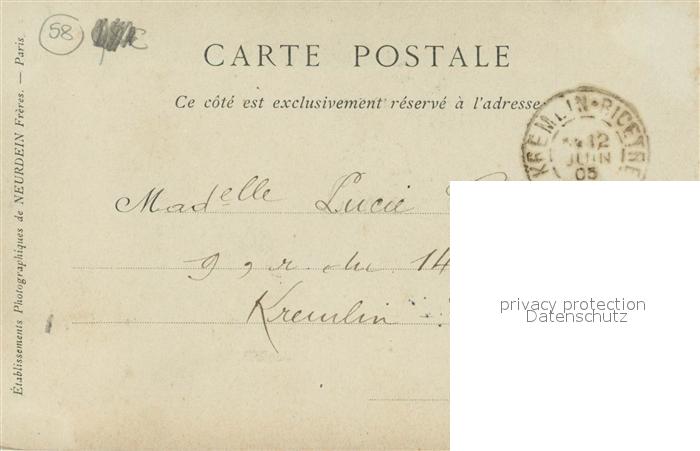 58
CARTE POSTALE
Ce côté est exclusivement réservé à l'adresse.
KREMLIN-BICETRE
12
JUIN
05
Madelle Lucie
99 r. du 14
Kremlin
privacy protection
Datenschutz
Établissements Photographiques de NEURDEIN Frères. — Paris